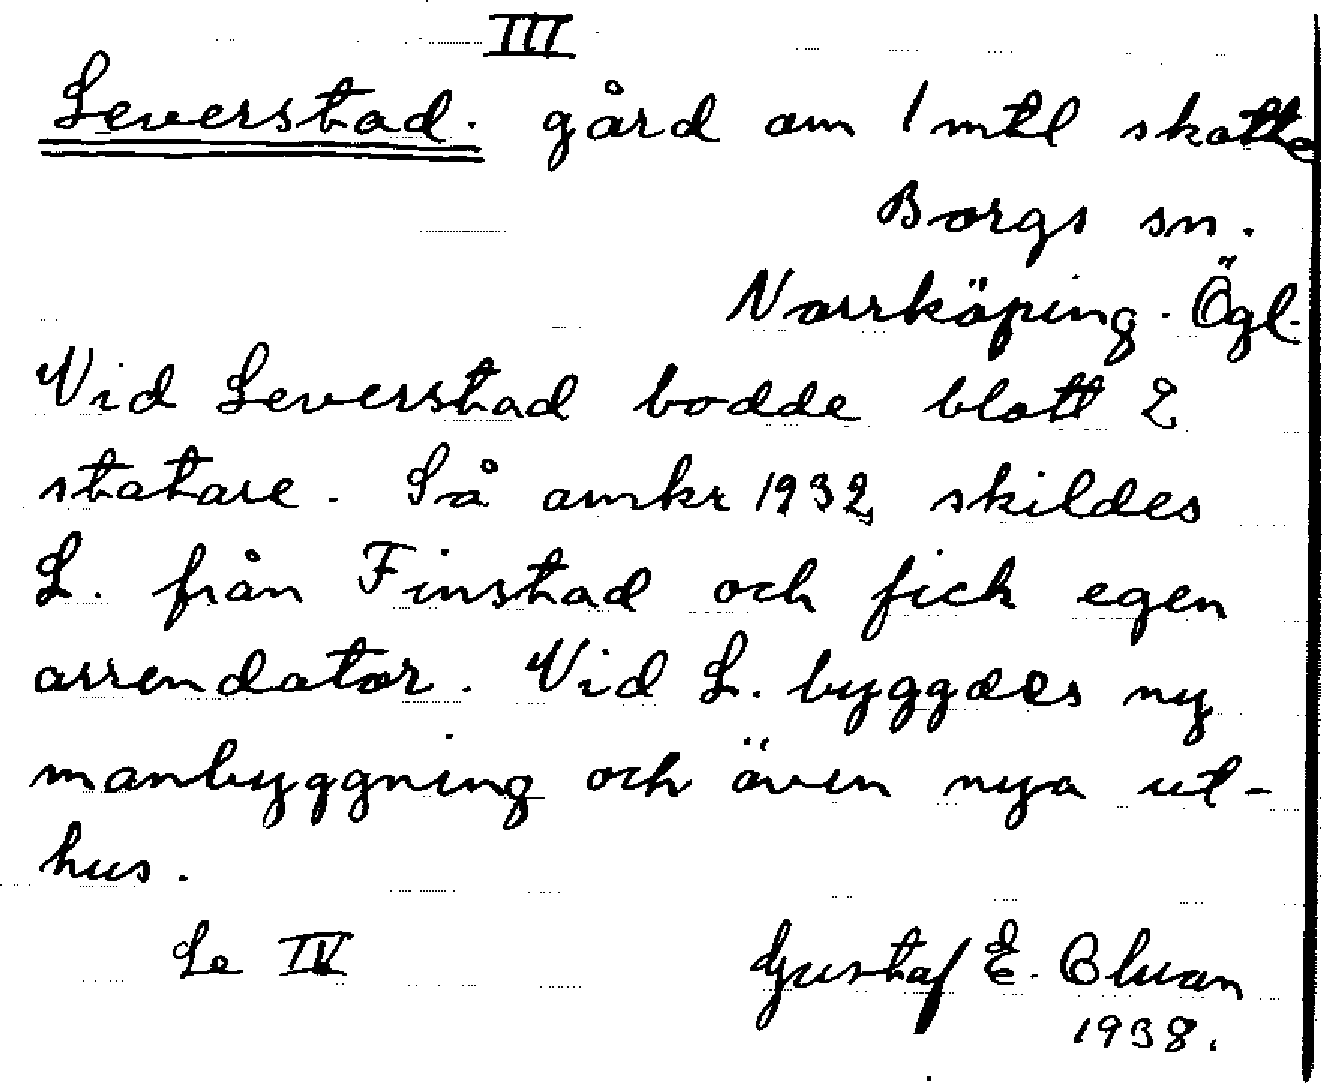 III
Leverstad. gård om 1 mtl skatte
Borgs sn.
Norrköping. Ögl.
Vid Leverstad bodde blott 2
statare. Så omkr 1932 skildes
L. från Finstad och fick egen
arrendator. Vid L. byggdes ny
manbyggning och även nya ut-
hus.
Se IV
Gustaf E.
1938.